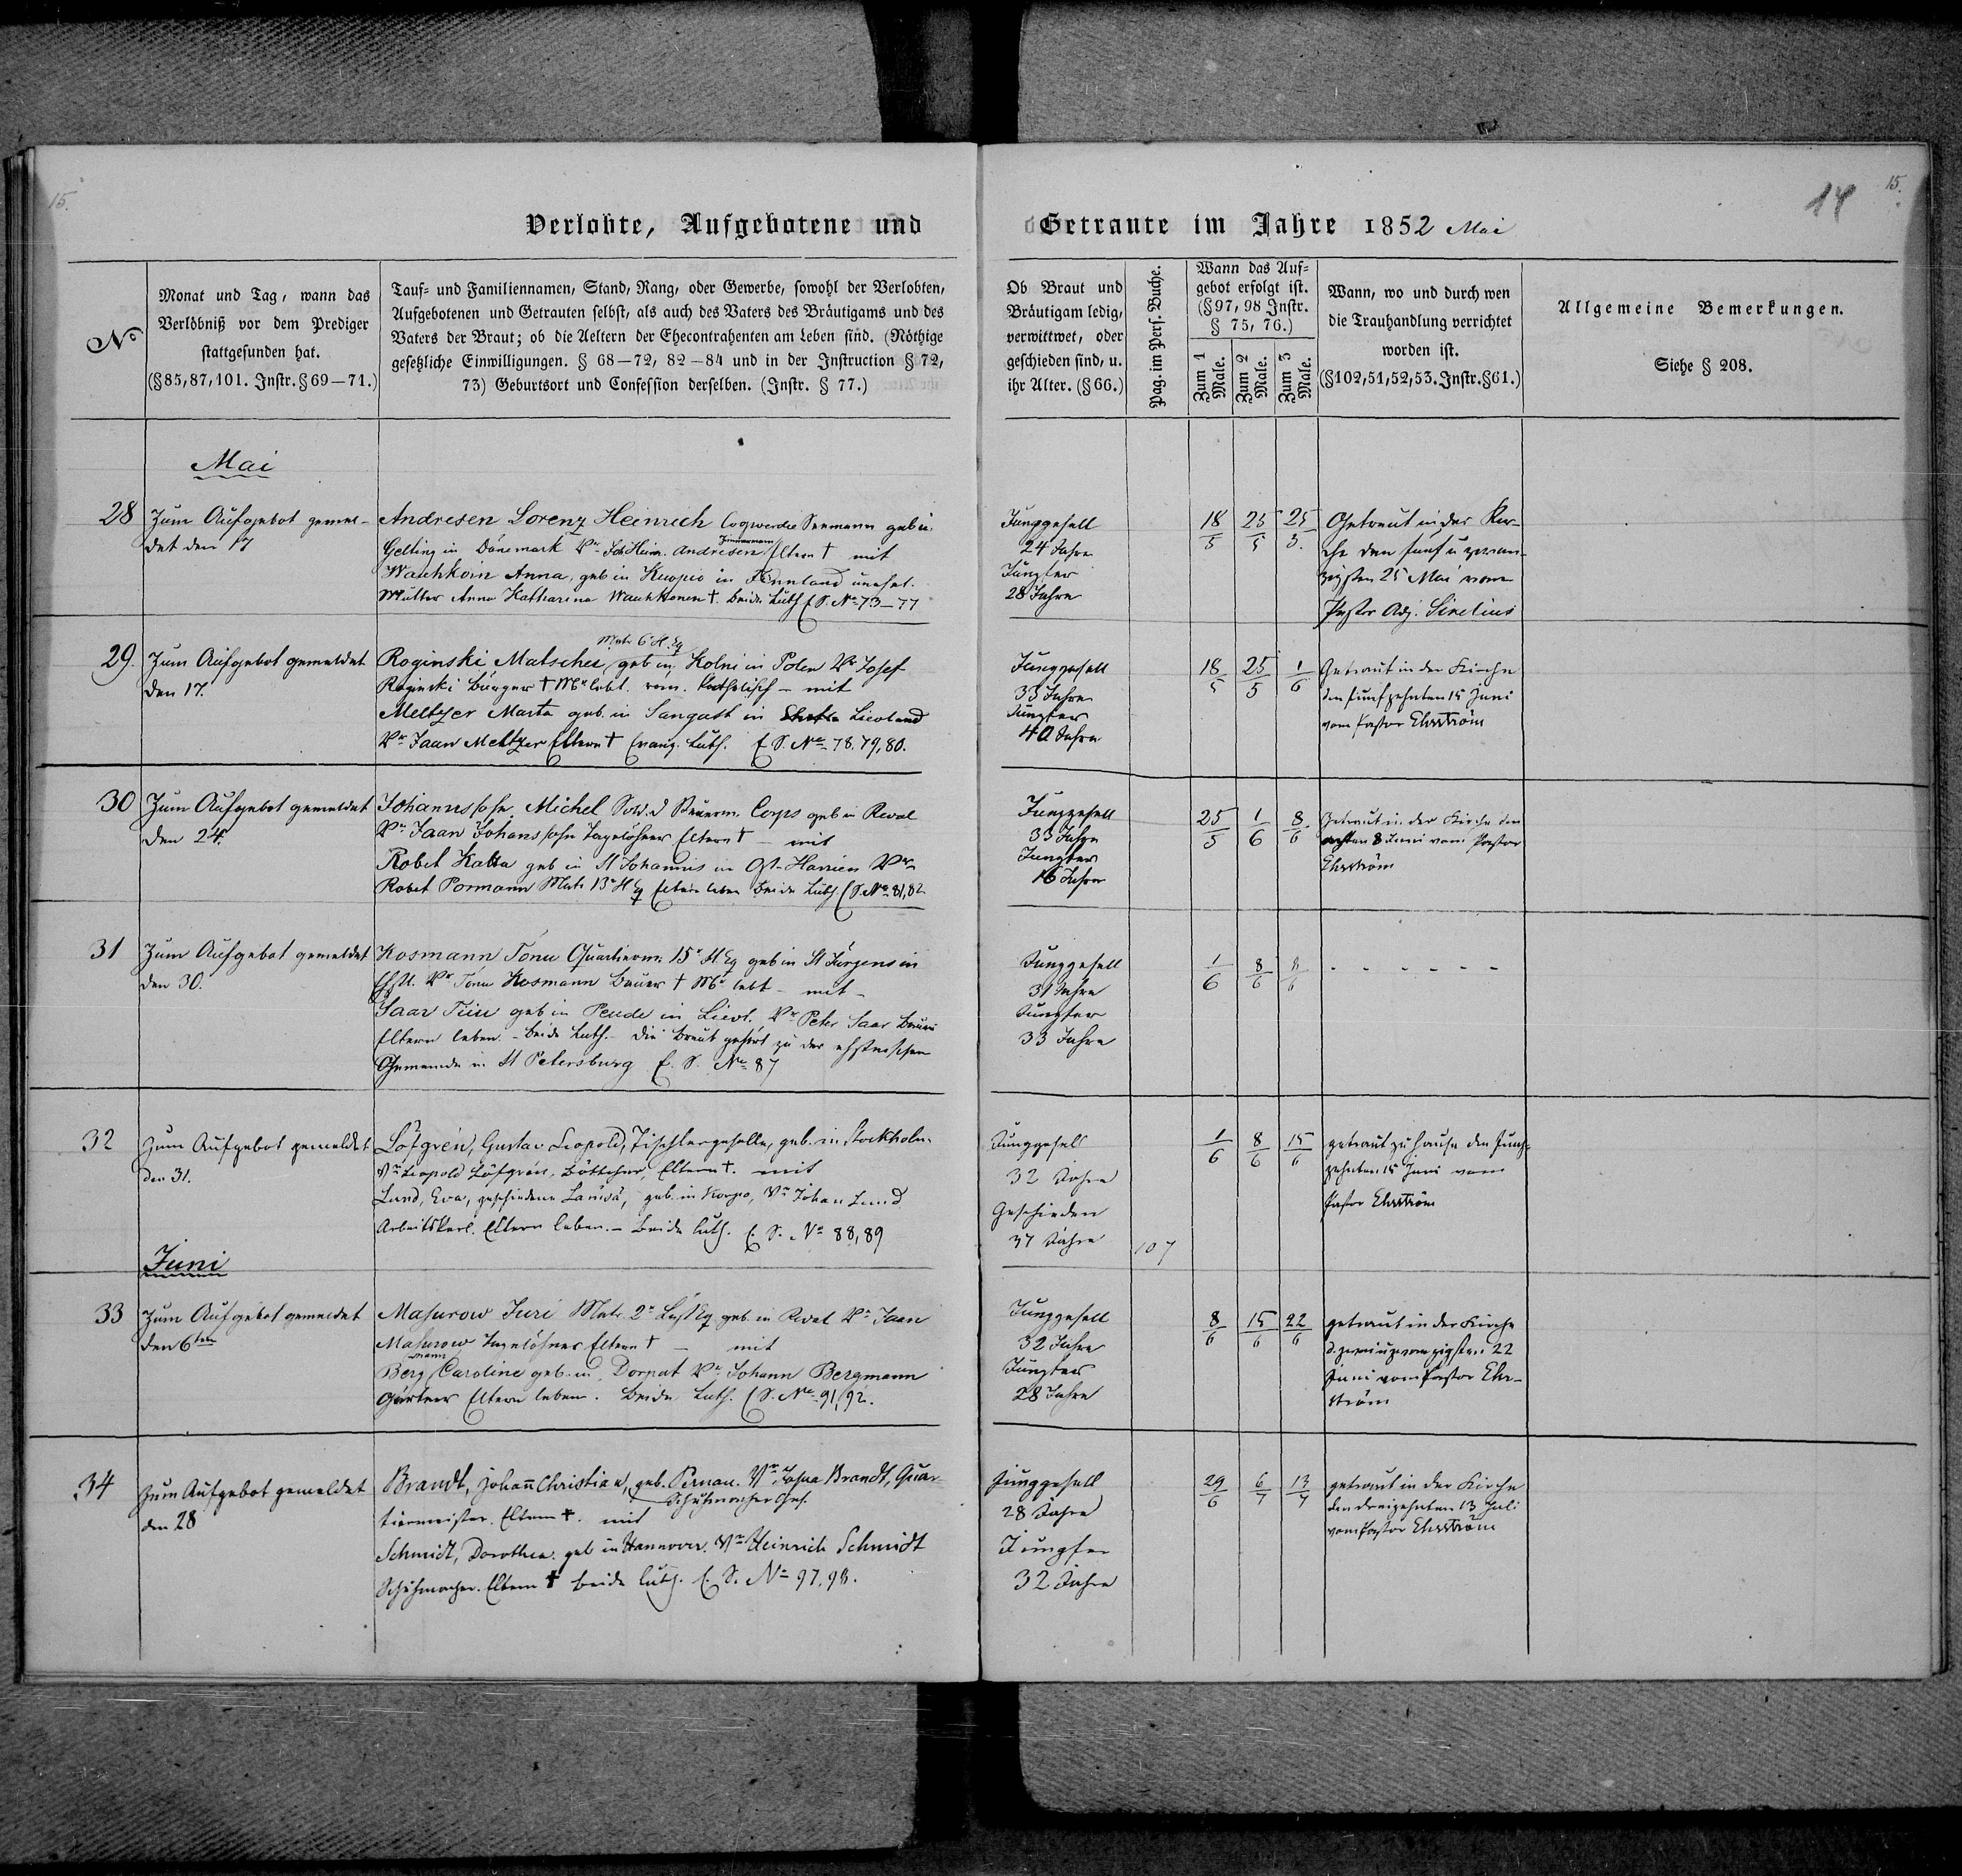 15.
Verlobte, Aufgebotene und
No
Monat und Tag, wann das
Verlöbniß vor dem Prediger
stattgefunden hat.
(§85,87,101. Instr.§69—71.)
Tauf- und Familiennamen, Stand, Rang, oder Gewerbe, sowohl der Verlobten,
Aufgebotenen und Getrauten selbst, als auch des Vaters des Bräutigams und des
Vaters der Braut; ob die Aeltern der Ehecontrahenten am Leben sind. (Nöthige
gesetzliche Einwilligungen. § 68—72, 82—84 und in der Instruction § 72,
73) Geburtsort und Confession derselben. (Instr. § 77.)
Mai
28
Zum Aufgebot gemel-
det den 17
Andresen Lorenz Heinrich Seemann geb in
Zimmermann
Gelting in Dänemark Vr Joh Heinr. Andresen Eltern † mit
Wauhkoin Anna, geb in Kuopio in Finnland unehel.
Mutter Anna Katharina Wauhkonen †. beide Luth E. S. No 73—77
29.
Zum Aufgebot gemeldet
den 17.
Matr 6 H. Eq
Roginski Matschei geb in Kolni in Polen Vr Josef
Roginski Bürger † Mr lebt. röm. Katholisch – mit
Meltzer Marta geb. in Sangast in Lievland
Vr Jaan Meltzer Eltern † Evang. Luth. E S. No 78. 79, 80.
30
Zum Aufgebot gemeldet
den 24.
Johannssohn Michel Sold. d Corps geb in Reval
Vr Jaan Johannssohn Tagelöhner Eltern † – mit
Robet Katta geb in St Johannis in Ost-Harrien Vr
Robet Pormann Matr 13r H Eq Eltern leben beide Luth. E S. No 81, 82
31
Zum Aufgebot gemeldet
den 30.
Kosmann Tönu Quartierm. 15r H Eq geb in St Jürgens in
Ehstl. Vr Tönu Kosmann Bauer † Mr lebt – mit –
Saar Tiiu geb in Peude in Lievl. Vr Peter Saar Bauer
Eltern leben. – beide Luth. – Die Braut gehört zu der ehstnischen
Gemeinde in St Petersburg E. S. No 87
32
Zum Aufgebot gemeldet
den 31.
Löfgrén, Gustav Leopold, Tischlergeselle, geb. in Stockholm.
Vr Leopold Löfgrén, Böttcher, Eltern †. mit
Lund, Eva, geschiedene geb. in Korpo, Vr Johan Lund
Arbeitskerl. Eltern leben. – beide luth. E. S. No 88, 89
Juni
33
Zum Aufgebot gemeldet
den 6ten
Masurow Juri Matr. 2r geb. in Reval Vr Jaan
Masurow Tagelöhner Eltern † – mit
mann
Berg Caroline geb. in Dorpat Vr Johann Bergmann
Gärtner Eltern leben. beide Luth. E S. No 91, 92.
34
Zum Aufgebot gemeldet
den 28
Brandt, Johan̄ Christian, geb. Pernau. Vr Brandt, Quar-
Schuhmacher Ges.
tiermeister. Eltern †. mit
Schmidt, Dorothea. geb in Hannover. Vr Heinrich Schmidt
Schuhmacher. Eltern † beide luth. E. S. No 97, 98.
14
15.
Getraute im Jahre 1852 Mai
Ob Braut und
Bräutigam ledig,
verwittwet, oder
geschieden sind, u.
ihr Alter. (§66.)
Pag. im Pers. Buche.
Wann das Auf-
gebot erfolgt ist.
(§97, 98 Instr.
§ 75, 76.)
Zum 1 Male.
Zum 2 Male.
Zum 3 Male.
Wann, wo und durch wen
die Trauhandlung verrichtet
worden ist.
(§102,51,52,53.Instr.§61.)
Allgemeine Bemerkungen.
Siehe § 208.
Junggesell
24 Jahre
Jungfer
28 Jahre
18/5 25/5 25/5.
Getraut in der Kir-
che den fünf u zwan-
zigsten 25 Mai vom
Pastor Adj. Sirelius
Junggesell
33 Jahre
Jungfer
40 Jahre
18/5 25/5 1/6
Getraut in der Kirche
den funfzehnten 15 Juni
vom Pastor Ehrström
Junggesell
33 Jahre
Jungfer
16 Jahre
25/5 1/6 8/6
Getraut in der Kirche den
achten 8 Juni vom Pastor
Ehrström
Junggesell
31 Jahre
Jungfer
33 Jahre
1/6 8/6 8/6
- - - - - -
Junggesell
32 Jahre
Geschieden
37 Jahre
107
1/6 8/6 15/6
getraut zu Hause den funf-
zehnten 15 Juni vom
Pastor Ehrström
Junggesell
32 Jahre
Jungfer
28 Jahre
8/6 15/6 22/6
getraut in der Kirche
d. zwei u zwanzigsten 22
Juni vom Pastor Ehr-
ström
Junggesell
28 Jahre
Jungfer
32 Jahre
29/6 6/7 13/7
getraut in der Kirche
den dreizehnten 13 Juli
vom Pastor Ehrström